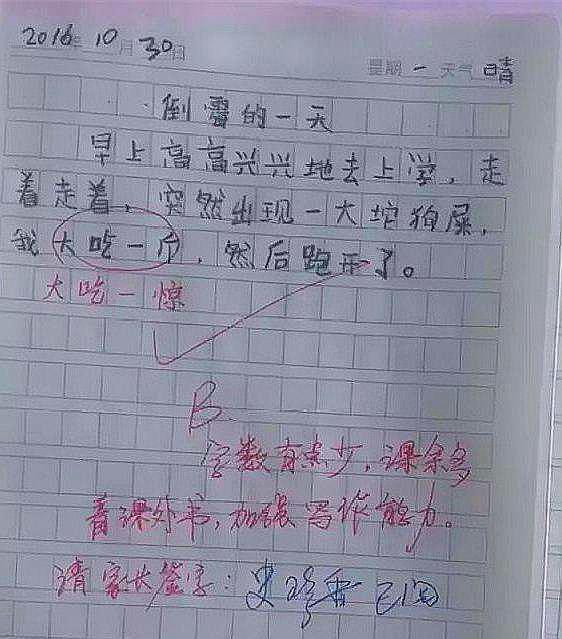 2016年10月30日
星期一 天气晴
倒霉的一天
早上高高兴兴地去上学，走
着走着，突然出现一大坨狗屎，
我大吃一斤，然后跑开了。
大吃一惊
B
字数有点少，课余多
看课外书，加强写作能力。
请家长签字：史珍香 已阅